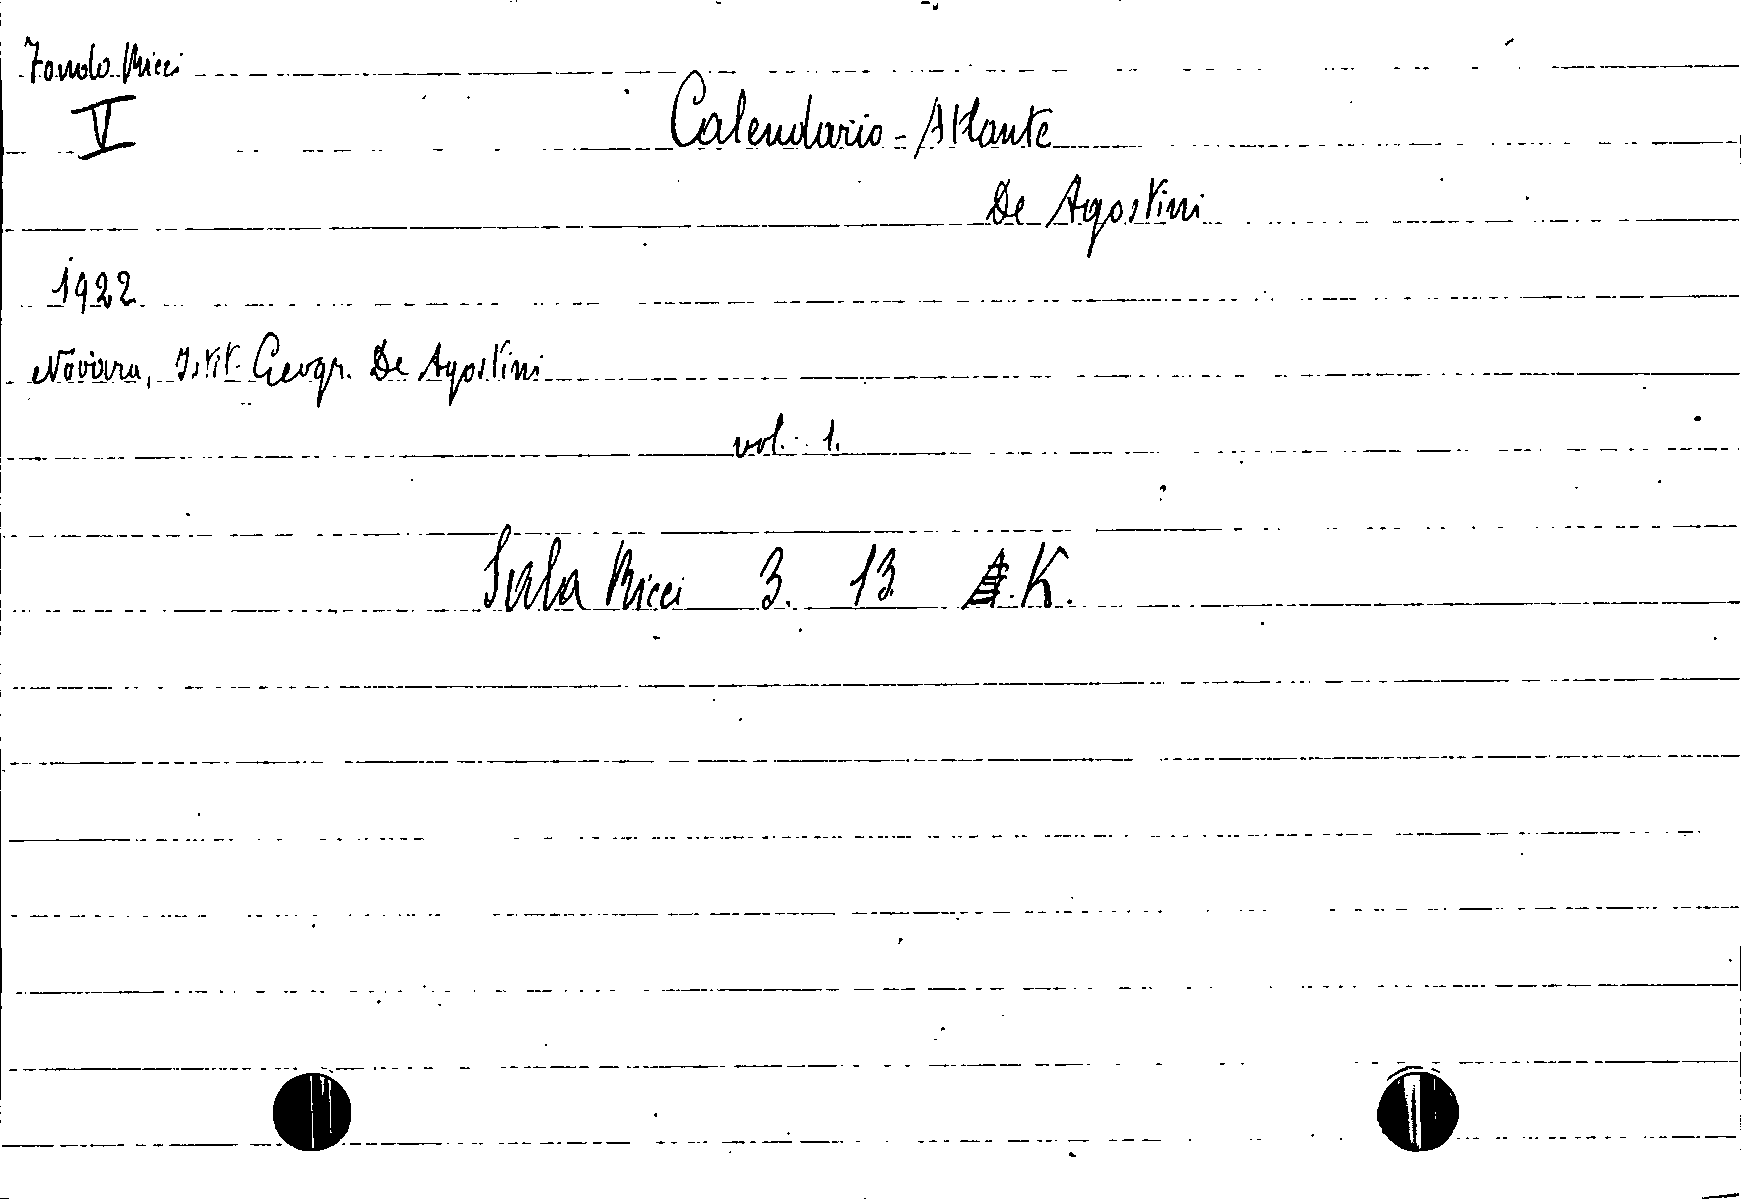 Fondo Ricci
V
Calendario = Atlante
De Agostini
1922
Novara, Istit. Geogr. De Agostini
vol. 1.
Sala Ricci 3. 13 K.